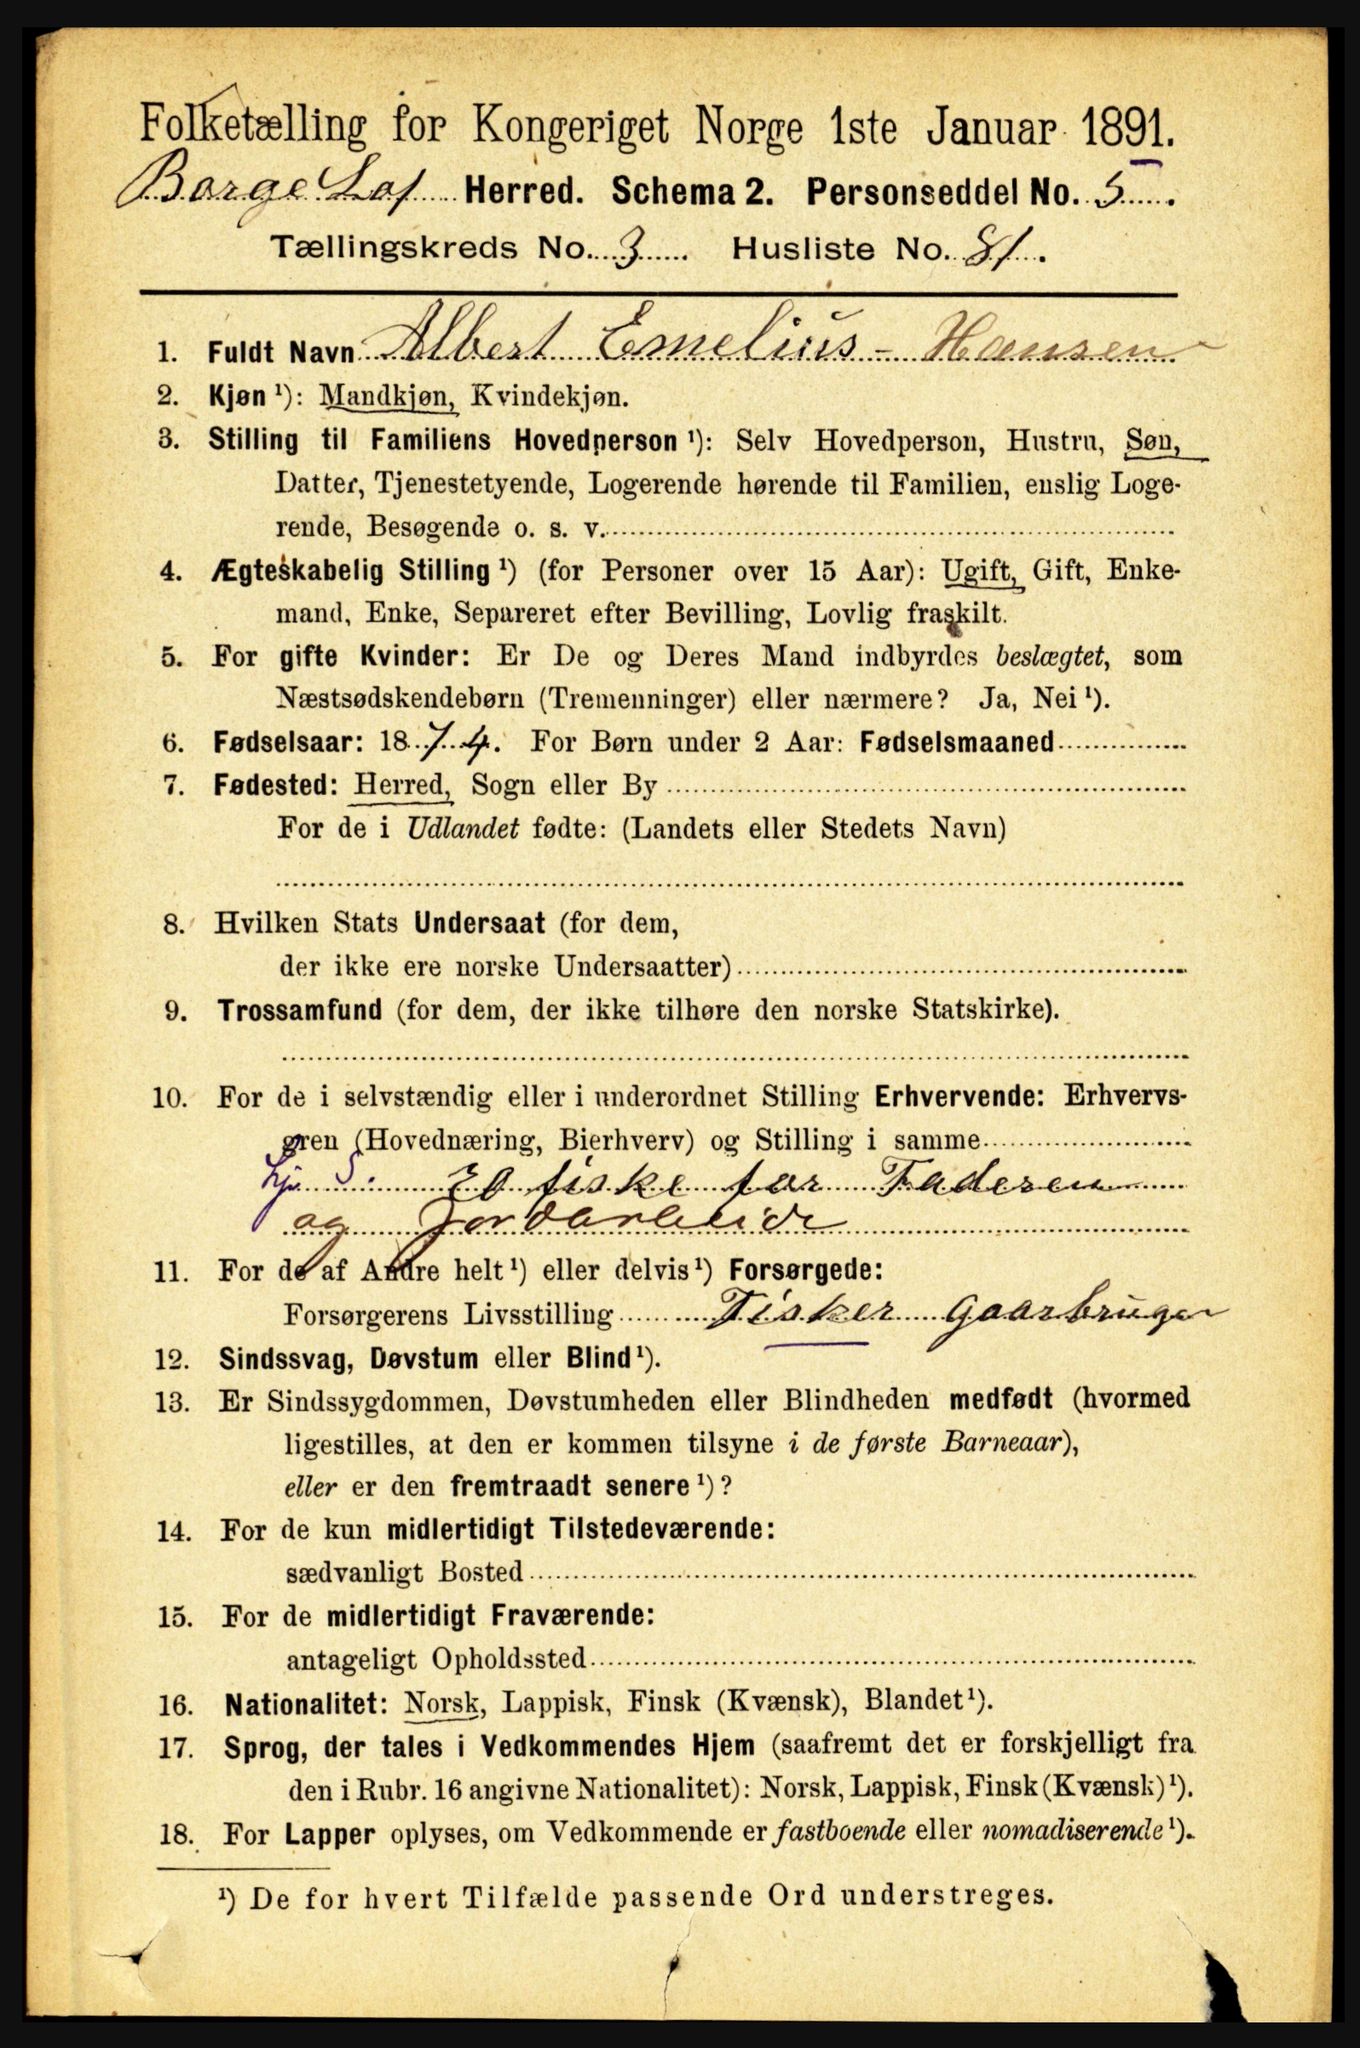 Folketælling for Kongeriget Norge 1ste Januar 1891.
Borge Lof Herred. Schema 2. Personseddel No. 5.
Tællingskreds No. 3 Husliste No. 81.
1. Fuldt Navn Albert Emelius - Hansen
2. Kjøn ¹): Mandkjøn, Kvindekjøn.
3. Stilling til Familiens Hovedperson ¹): Selv Hovedperson, Hustru, Søn,
Datter, Tjenestetyende, Logerende hørende til Familien, enslig Loge-
rende, Besøgende o. s. v.
4. Ægteskabelig Stilling ¹) (for Personer over 15 Aar): Ugift, Gift, Enke-
mand, Enke, Separeret efter Bevilling, Lovlig fraskilt.
5. For gifte Kvinder: Er De og Deres Mand indbyrdes beslægtet, som
Næstsødskendebørn (Tremenninger) eller nærmere? Ja, Nei ¹).
6. Fødselsaar: 1874. For Børn under 2 Aar: Fødselsmaaned
7. Fødested: Herred, Sogn eller By
For de i Udlandet fødte: (Landets eller Stedets Navn)
8. Hvilken Stats Undersaat (for dem,
der ikke ere norske Undersaatter)
9. Trossamfund (for dem, der ikke tilhøre den norske Statskirke).
10. For de i selvstændig eller i underordnet Stilling Erhvervende: Erhvervs-
gren (Hovednæring, Bierhverv) og Stilling i samme
fiske for Faderen
og Jordarbeide
11. For de af Andre helt ¹) eller delvis ¹) Forsørgede:
Forsørgerens Livsstilling Fisker Gaarbruger
12. Sindssvag, Døvstum eller Blind ¹).
13. Er Sindssygdommen, Døvstumheden eller Blindheden medfødt (hvormed
ligestilles, at den er kommen tilsyne i de første Barneaar),
eller er den fremtraadt senere ¹)?
14. For de kun midlertidigt Tilstedeværende:
sædvanligt Bosted
15. For de midlertidigt Fraværende:
antageligt Opholdssted
16. Nationalitet: Norsk, Lappisk, Finsk (Kvænsk), Blandet ¹).
17. Sprog, der tales i Vedkommendes Hjem (saafremt det er forskjelligt fra
den i Rubr. 16 angivne Nationalitet): Norsk, Lappisk, Finsk (Kvænsk) ¹).
18. For Lapper oplyses, om Vedkommende er fastboende eller nomadiserende ¹).
¹) De for hvert Tilfælde passende Ord understreges.